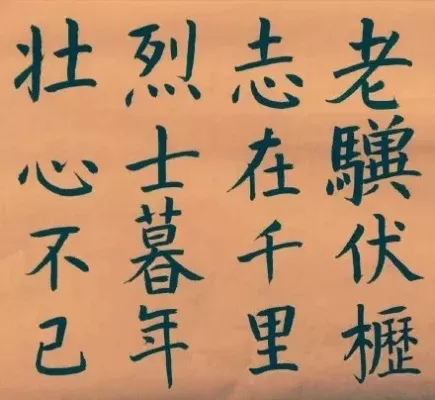 老驥伏櫪
志在千里
烈士暮年
壮心不已